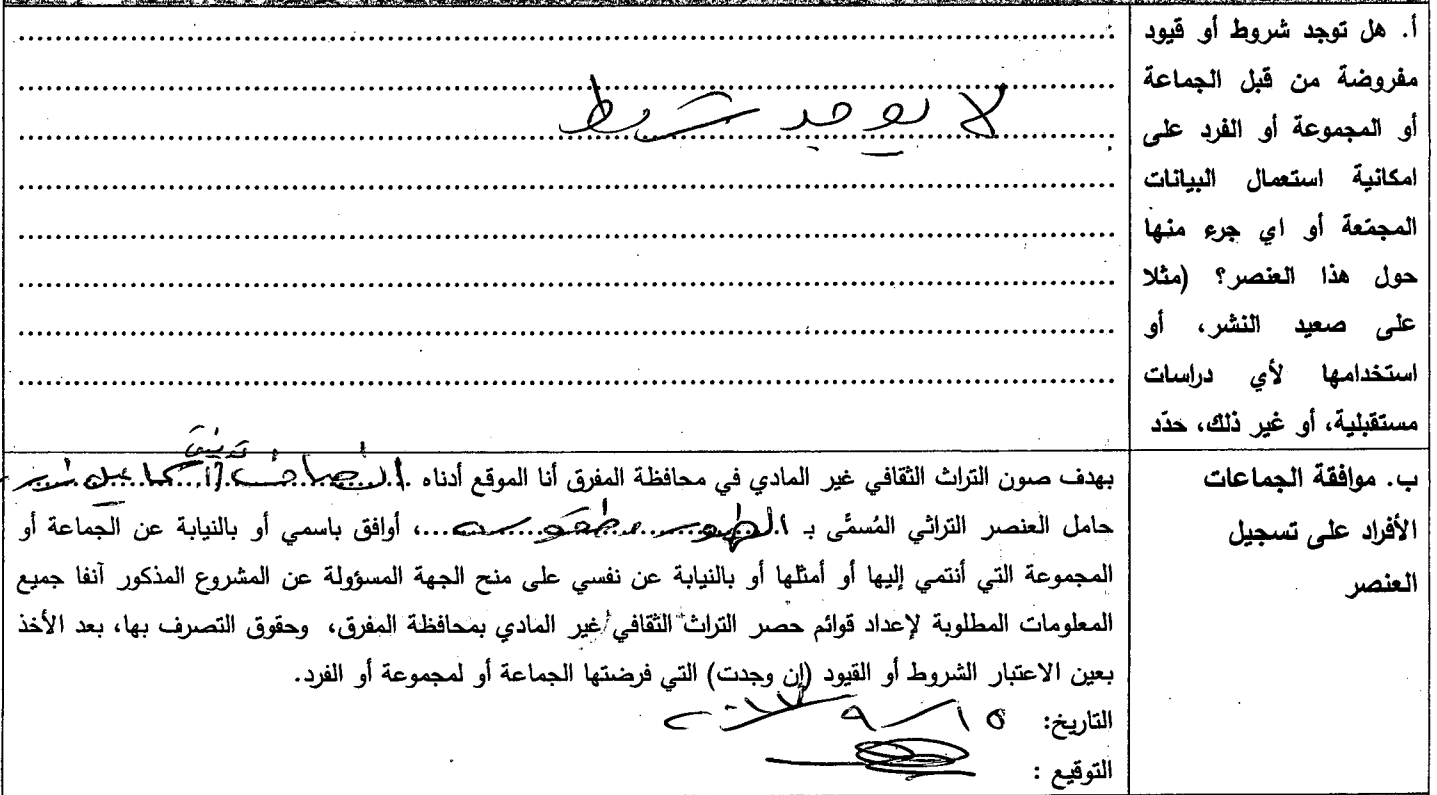 أ. هل توجد شروط أو قيود
مفروضة من قبل الجماعة
أو المجموعة أو الفرد على
امكانية استعمال البيانات
المجمّعة أو اي جرء منها
حول هذا العنصر؟ (مثلا
على صعيد النشر، أو
استخدامها لأي دراسات
مستقبلية، أو غير ذلك، حدّد
لا يوجد شروط
ب. موافقة الجماعات
الأفراد على تسجيل
العنصر
بهدف صون التراث الثقافي غير المادي في محافظة المفرق أنا الموقع أدناه
حامل العنصر التراثي المُسمَّى بـ ، أوافق باسمي أو بالنيابة عن الجماعة أو
المجموعة التي أنتمي إليها أو أمثلها أو بالنيابة عن نفسي على منح الجهة المسؤولة عن المشروع المذكور آنفا جميع
المعلومات المطلوبة لإعداد قوائم حصر التراث الثقافي غير المادي بمحافظة المفرق، وحقوق التصرف بها، بعد الأخذ
بعين الاعتبار الشروط أو القيود (إن وجدت) التي فرضتها الجماعة أو لمجموعة أو الفرد.
التاريخ: ١٥/٩/٢٠١٧
التوقيع :